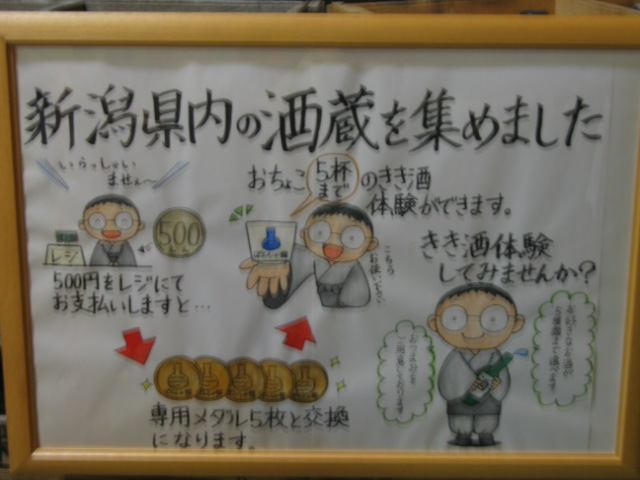 新潟県内の酒蔵を集めました
いらっしゃい
ませぇ～
レジ
500
500円をレジにて
お支払いしますと…
専用メダル5枚と交換
になります。
おちょこ5杯までのきき酒
体験ができます。
こちら
お使い下さい
きき酒体験
してみませんか?
おつまみも
ご用意しております